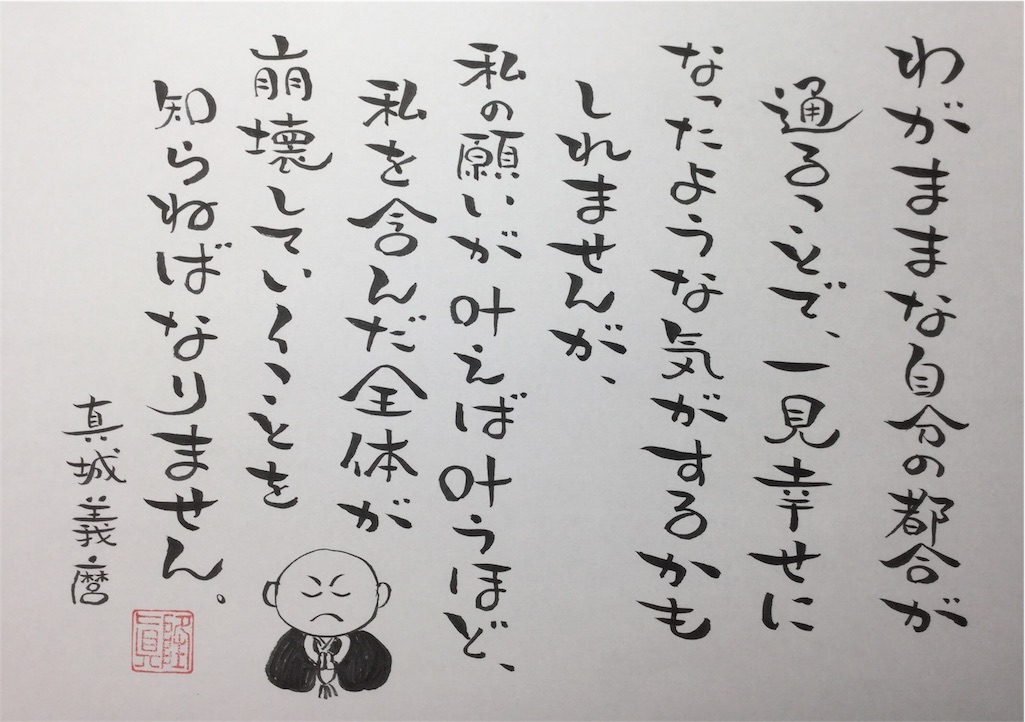 わがままな自分の都合が
通ることで、一見幸せに
なったような気がするかも
しれませんが、
私の願いが叶えば叶うほど、
私を含んだ全体が
崩壊していくことを
知らねばなりません。
真城義麿
隆眞